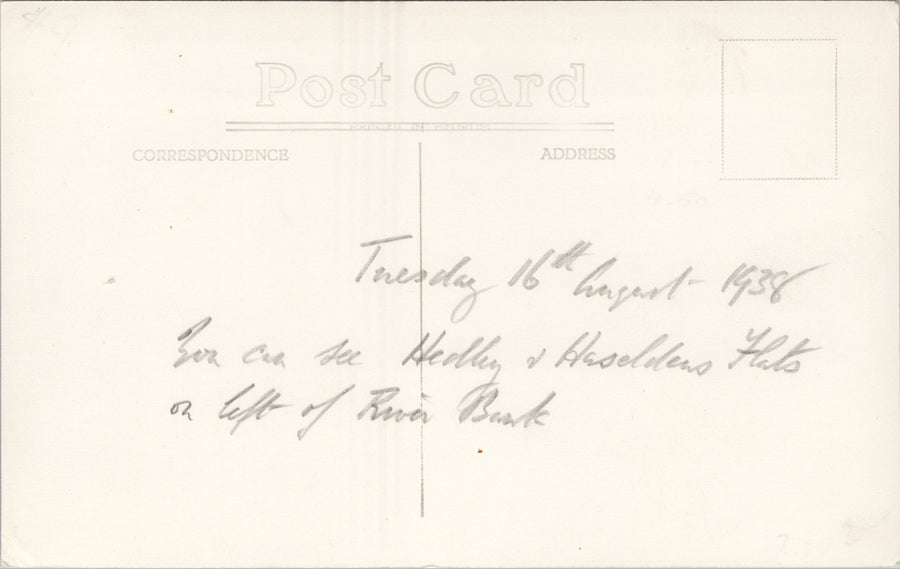 Post Card
PRINTED IN BELGIUM
CORRESPONDENCE
ADDRESS
4.50
Tuesday 16th August - 1938
You can see Hedley & Haseldens Flats
on left of River Bank